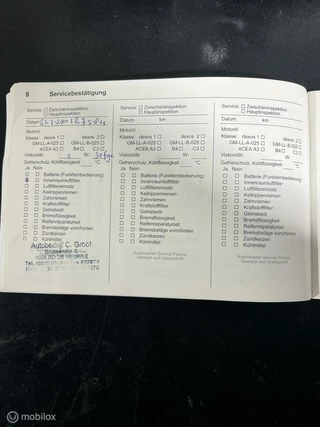 8 Servicebestätigung
Service: ☐ Zwischeninspektion
☐ Hauptinspektion
Datum km
Motoröl
Klasse: dexos 1 ☐ dexos 2 ☐
GM-LL-A-025 ☐ GM-LL-B-025 ☐
ACEA A3 ☐ B4 ☐ C3 ☐
Viskosität: W-
Gefrierschutz, Kühlflüssigkeit °C
Ja Nein
☐ ☐ Batterie (Funkfernbedienung)
☐ Innenraumluftfilter
☐ ☐ Luftfiltereinsatz
☐ ☐ Keilrippenriemen
☐ ☐ Zahnriemen
☐ ☐ Kraftstofffilter
☐ ☐ Getriebeöl
☐ ☐ Bremsflüssigkeit
☐ ☐ Reifenreparaturset
☐ ☐ Bremsbeläge vorn/hinten
☐ ☐ Zündkerzen
☐ ☐ Kühlmittel
Autobedrijf C. Groot
Service: ☐ Zwischeninspektion
☐ Hauptinspektion
Datum km
Motoröl
Klasse: dexos 1 ☐ dexos 2 ☐
GM-LL-A-025 ☐ GM-LL-B-025 ☐
ACEA A3 ☐ B4 ☐ C3 ☐
Viskosität: W-
Gefrierschutz, Kühlflüssigkeit °C
Ja Nein
☐ ☐ Batterie (Funkfernbedienung)
☐ ☐ Innenraumluftfilter
☐ ☐ Luftfiltereinsatz
☐ ☐ Keilrippenriemen
☐ ☐ Zahnriemen
☐ ☐ Kraftstofffilter
☐ ☐ Getriebeöl
☐ ☐ Bremsflüssigkeit
☐ ☐ Reifenreparaturset
☐ ☐ Bremsbeläge vorn/hinten
☐ ☐ Zündkerzen
☐ ☐ Kühlmittel
Autorisierter Service Partner
Stempel und Unterschrift
Service: ☐ Zwischeninspektion
☐ Hauptinspektion
Datum km
Motoröl
Klasse: dexos 1 ☐ dexos 2 ☐
GM-LL-A-025 ☐ GM-LL-B-025 ☐
ACEA A3 ☐ B4 ☐ C3 ☐
Viskosität: W-
Gefrierschutz, Kühlflüssigkeit °C
Ja Nein
☐ ☐ Batterie (Funkfernbedienung)
☐ ☐ Innenraumluftfilter
☐ ☐ Luftfiltereinsatz
☐ ☐ Keilrippenriemen
☐ ☐ Zahnriemen
☐ ☐ Kraftstofffilter
☐ ☐ Getriebeöl
☐ ☐ Bremsflüssigkeit
☐ ☐ Reifenreparaturset
☐ ☐ Bremsbeläge vorn/hinten
☐ ☐ Zündkerzen
☐ ☐ Kühlmittel
Autorisierter Service Partner
Stempel und Unterschrift
© mobilox